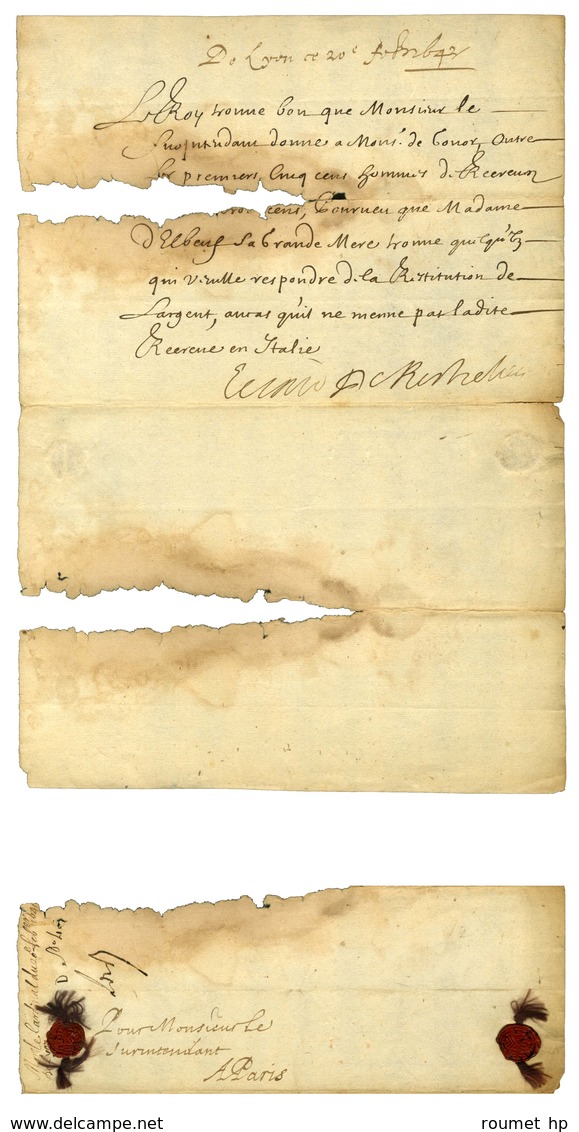 De Lyon ce 20e febr 1642
Le Roy trouue bon que Monsieur le
Surjntendant donne a Monsr. de Gonor, Outre
les premiers, Cinq cens hommes de Recreue
cens, Pourueu que Madame
D'Elbeuf Sa Grande Mere trouue quelqu'un
qui veuille respondre de la Restitution de
Largent, aucas qu'il ne menne pas ladite
Recreue en Italie
Le Card De Richelieu
Pour Monsieur le
Surintendant
A Paris
roumet hp